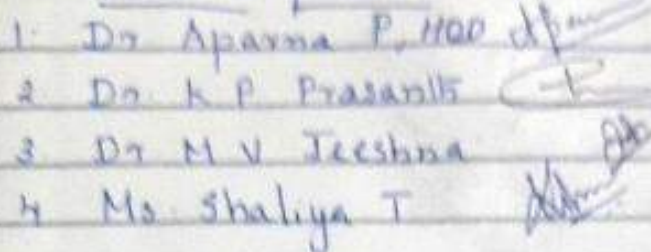 1. Dr Aparna P, HOD
2 Dr. K P Prasanth
3 Dr M V Jeeshna
4 Ms. Shaliya T